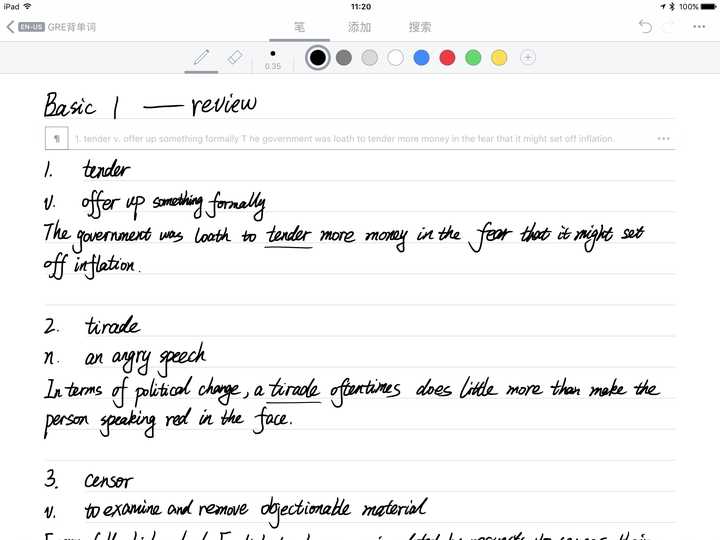 iPad 11:20 100%
EN-US GRE背单词 笔 添加 搜索
0.35
Basic 1 — review
¶ 1. tender v. offer up something formally T he government was loath to tender more money in the fear that it might set off inflation.
1. tender
v. offer up something formally
The government was loath to tender more money in the fear that it might set
off inflation.
2. tirade
n. an angry speech
In terms of political change, a tirade oftentimes does little more than make the
person speaking red in the face.
3. censor
v. to examine and remove objectionable material